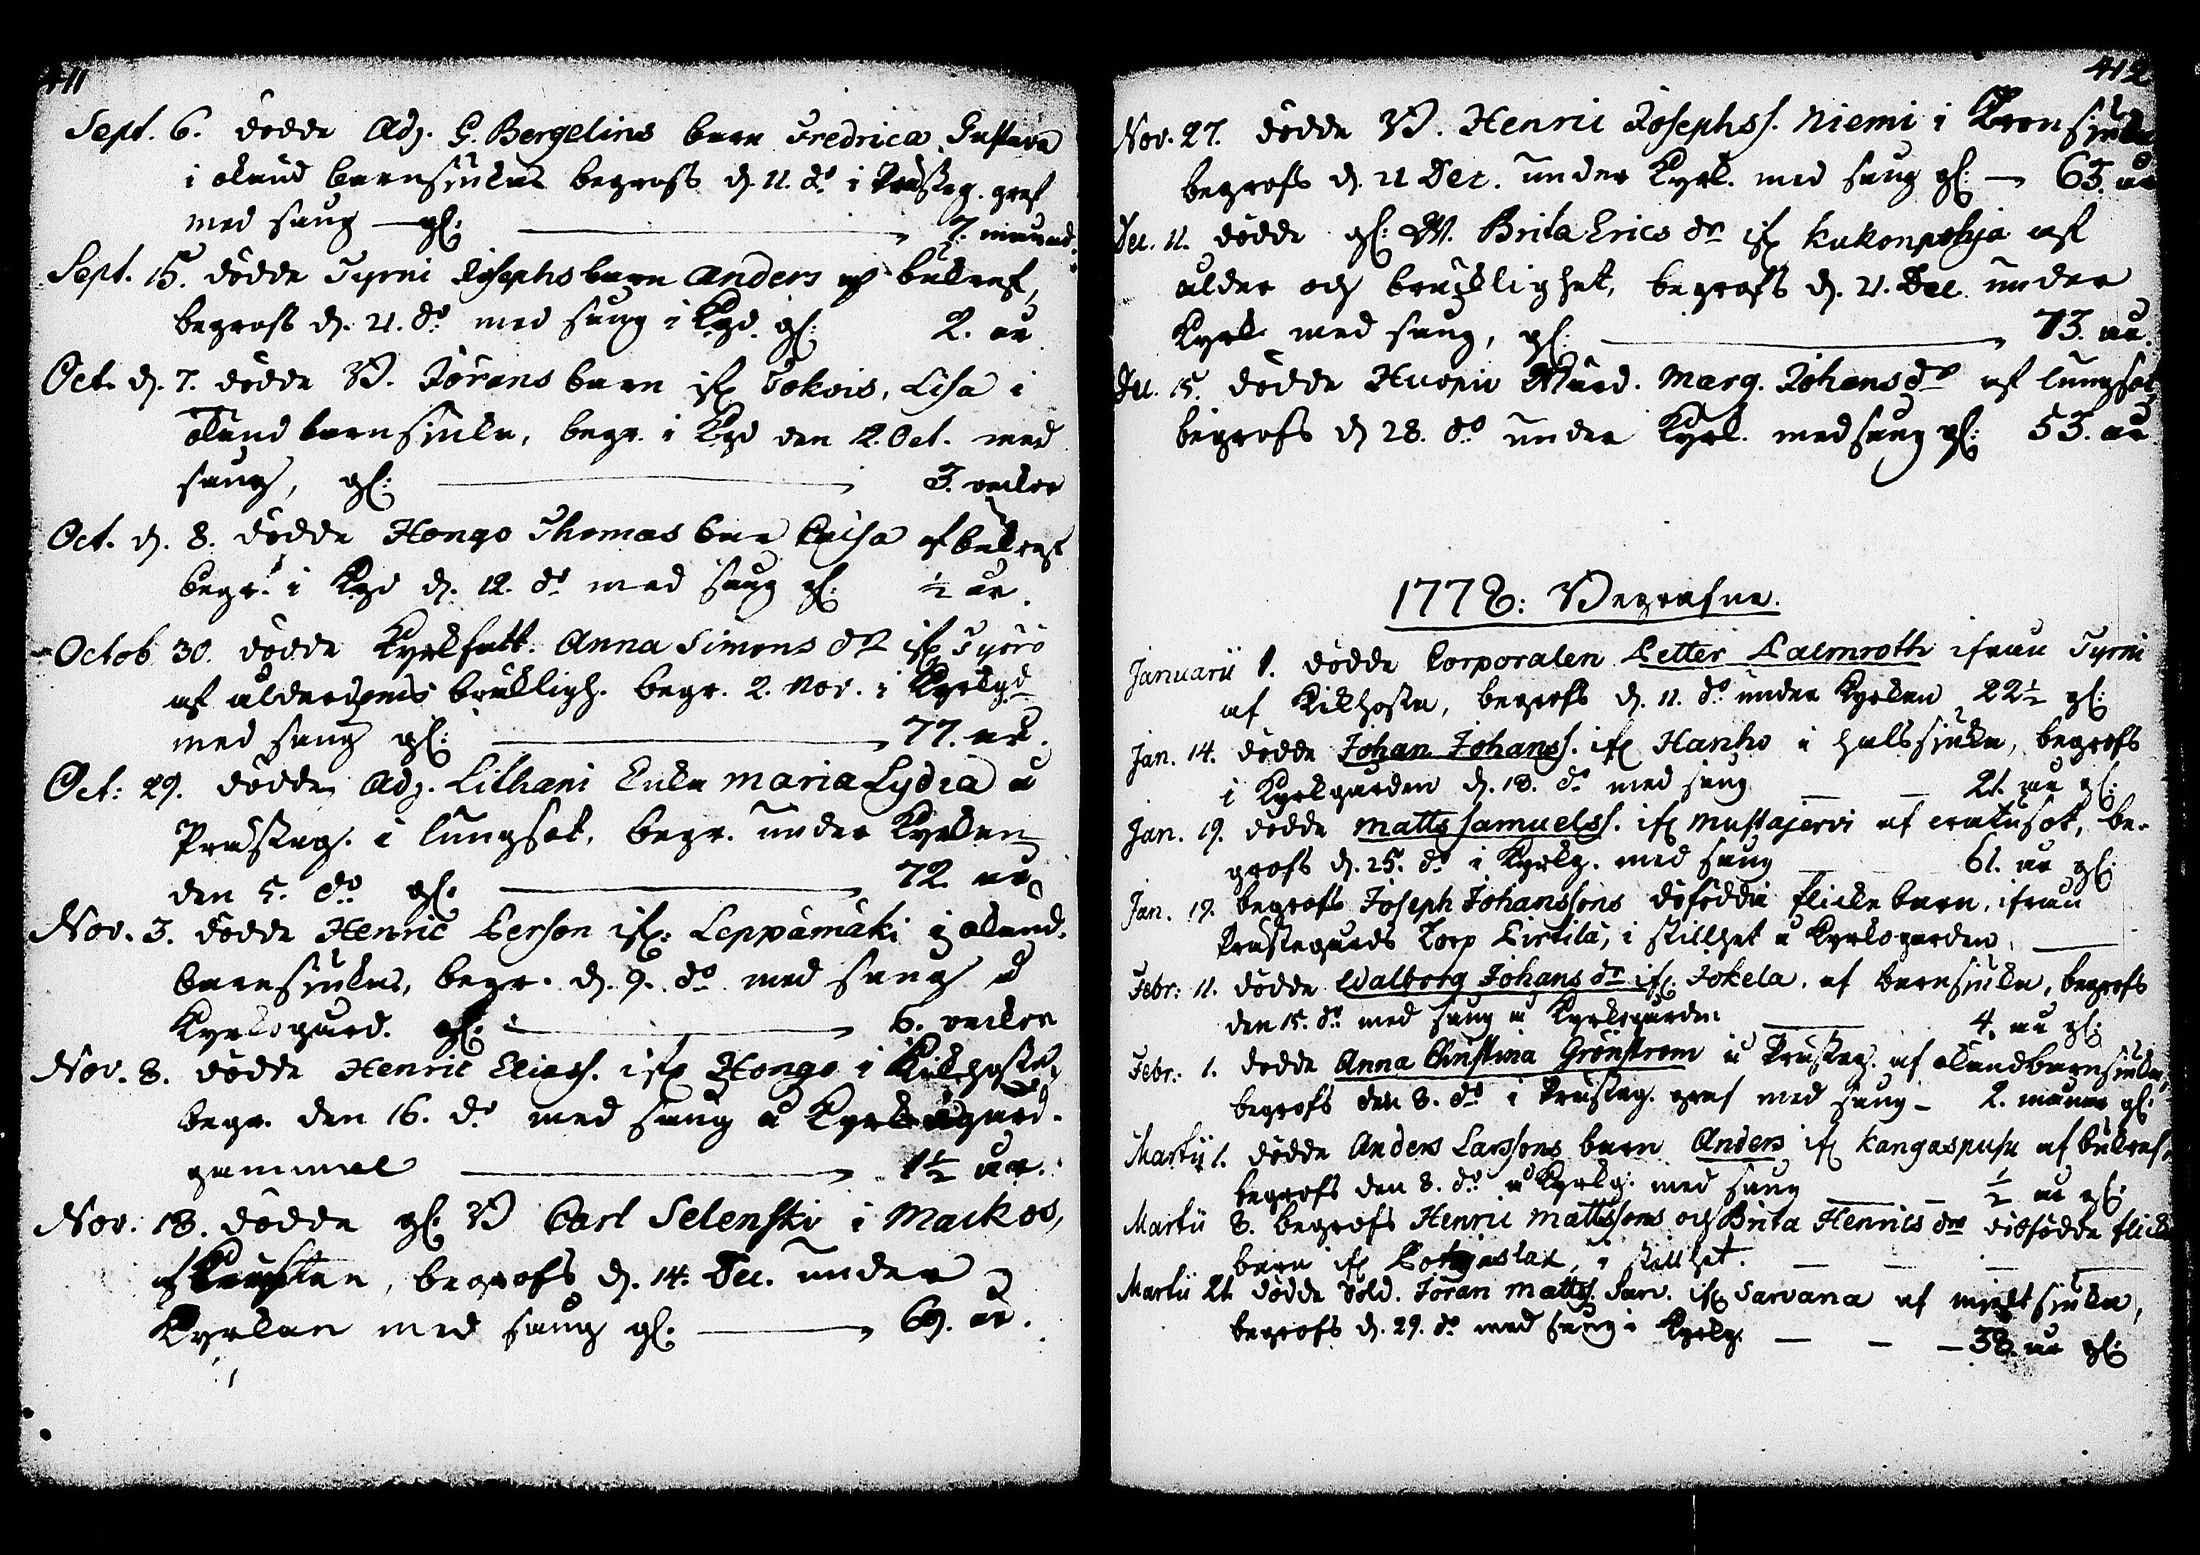 411
Sept. 6. dödde Adj. G. Bergelins barn Fredrica Gustava
i okänd barnsjukas begrofs d. 11. do i Prästeg. graf
med sång gl: 7. månad:
Sept. 15. dödde Tyrni Josephs barn Anders af bukref,
begrofs d. 21. do med sång i Kgd. gl: 2. år
Oct. d. 7. dödde B. Jörans barn ifr Tokois, Lisa i
okänd barnsjuka, begr. i Kgd den 12. Oct. med
sång, gl: 3. veckor
Oct. d. 8. dödde Hongo Thomas barn Caisa af bukref
begr. i Kgd d. 12. do med sång gl: ½ år.
Octob. 30. dödde Kyrkfatt. Anna Simons dr ifr Tyris
af ålderdoms bräkligh. begr. 2. Nov. i Kyrkgd
med sång gl: 77. år.
Oct: 29. dödde Adj. Lithani Enka Maria Lydia å
Prästeg. i lungsot, begr. under Kyrkan
den 5. do gl: 72. år
Nov. 3. dödde Henric Person ifr: Leppämäki i okänd.
barnsjukas, begr. d. 9. do med sång å
Kyrkogård. gl: 6. veckor
Nov. 8. dödde Henric Eliass. ifr Hongo i Kikhosta,
begr. den 16. do med sång å Kyrkogård.
gammal 1½ år.
Nov. 18. dödde gl. B Carl Selenski i Maickos,
af begrofs d. 14. Dec. under
Kyrkan med sång gl: 69. år.
412
Nov. 27. dödde B. Henric Josephs. Niemi i Bronsjuka
begrofs d. 21 Dec. under Kyrk. med sång gl: 63. år
Dec. 11. dödde gl: M. Brita Erics dr ifr Kukonpohja af
ålder och bräcklighet, begrofs d. 21. Dec under
Kyrk. med sång, gl: 73. år.
Dec. 15. dödde Huopio Mård. Marg. Johans dr af lungsot,
begrofs d 28. do under Kyrk. med sång gl: 53. år
1778: Begrafne.
Januarii 1. dödde Corporalen Petter Palmroth ifrån Tyrni
af Kikhosta, begrofs d. 11. do under Kyrkan 22½ gl:
Jan. 14. dödde Johan Johanss. ifr Hanho i halssjuka, begrofs
i Kyrkgården d. 18. do med sång 21. år gl:
Jan. 19. dödde Matts Samuelss. ifr Mustajervi af be-
grofs d. 25. do i Kyrkg. med sång 61. år gl:
Jan. 19. begrofs Joseph Johanssons döfödda flickebarn, ifrån
Prästegårds Torp Pirtilä, i stillhet å Kyrkogården
Febr: 11. dödde Walborg Johans dr ifr: Jokela, af barnsjuka, begrofs
den 15. do med sång å Kyrkogården 4. år gl:
Febr: 1. dödde Anna Christina Grönstrom å Prästeg. af okändbarnsjuka,
begrofs den 8. do i Prästeg. graf med sång 2. månar gl:
Martii 1. dödde Anders Larssons barn Anders ifr Kangaspusu af bukref,
begrofs den 8. do å Kyrkg. med sång ½ år gl:
Martii 8. begrofs Henric Mattssons och Brita Henrics drs dödfödde flicke
barn ifr i stillhet.
Martii 21. dödde Sold. Jöran Matts. Sarv. ifr Sarvana af mjältsjuka,
begrofs d. 29. do med sång i Kyrkg. 38. år gl: